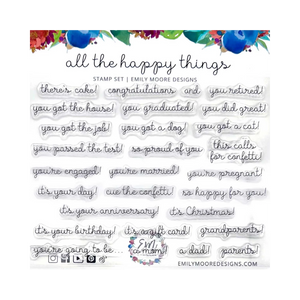 all the happy things
STAMP SET | EMILY MOORE DESIGNS
there's cake! congratulations and you retired!
you got the house! you graduated! you did great!
you got the job! you got a dog! you got a cat!
you passed the test! so proud of you this calls for confetti!
you're engaged! you're married! you're pregnant!
it's your day! cue the confetti! so happy for you!
it's your anniversary! it's Christmas!
it's your birthday! it's a gift card! grandparents!
you're going to be... a mom! a dad! parents!
EMILYMOOREDESIGNS.COM